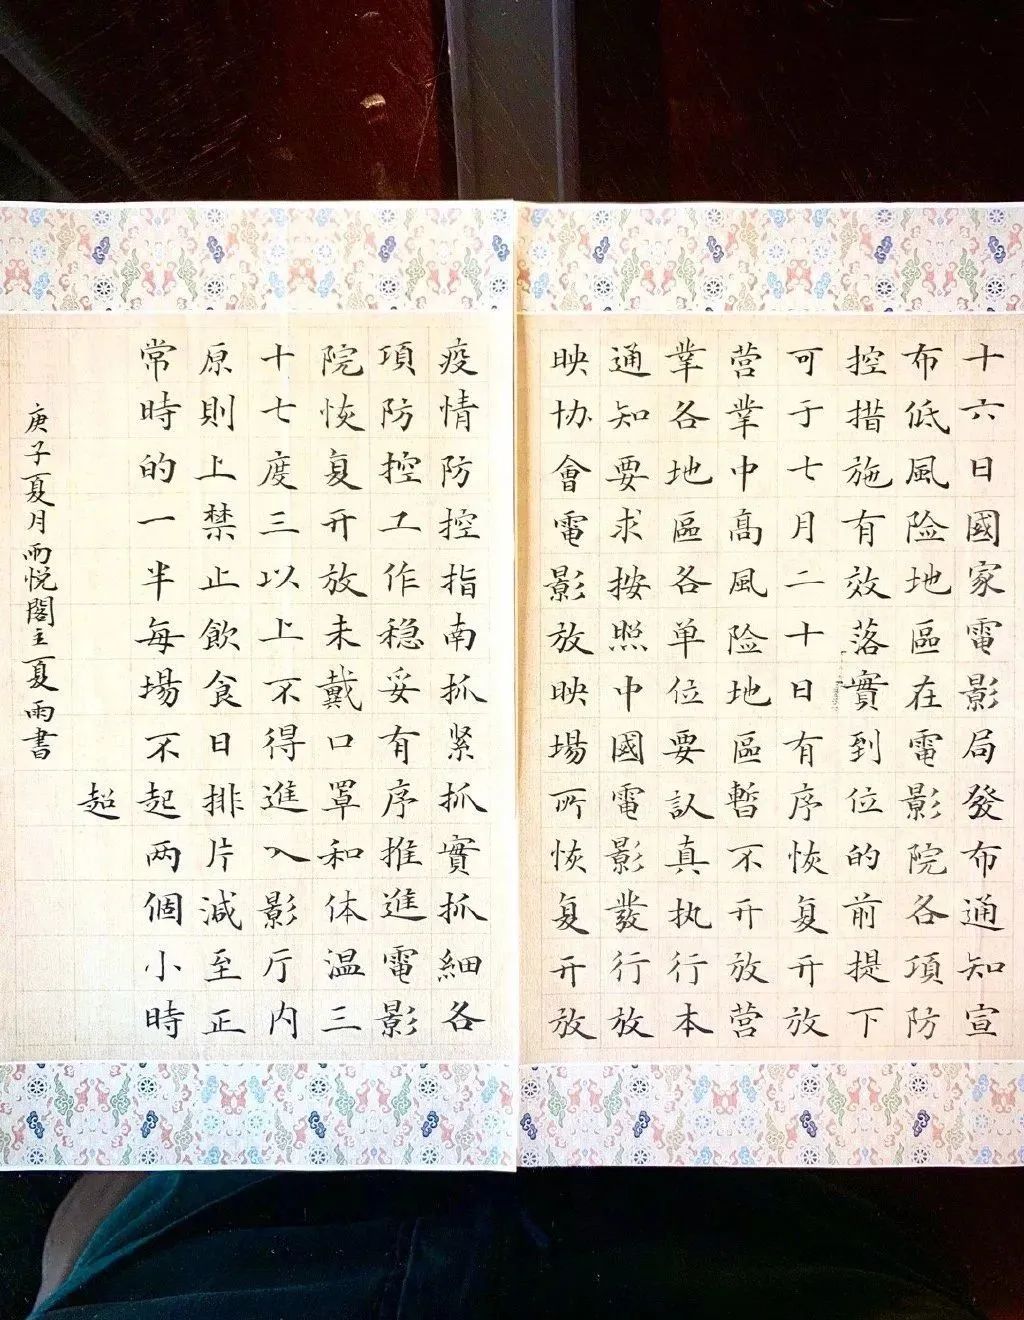 十六日國家電影局發布通知宣
布低風险地區在電影院各項防
控措施有效落實到位的前提下
可于七月二十日有序恢复开放
营業中高風险地區暫不开放营
業各地區各单位要认真执行本
通知要求按照中國電影發行放
映协會電影放映場所恢复开放
疫情防控指南抓紧抓實抓細各
項防控工作稳妥有序推進電影
院恢复开放未戴口罩和体温三
十七度三以上不得進入影厅内
原則上禁止飲食日排片減至正
常時的一半每場不起两個小時
超
庚子夏月雨悦閣主夏雨書